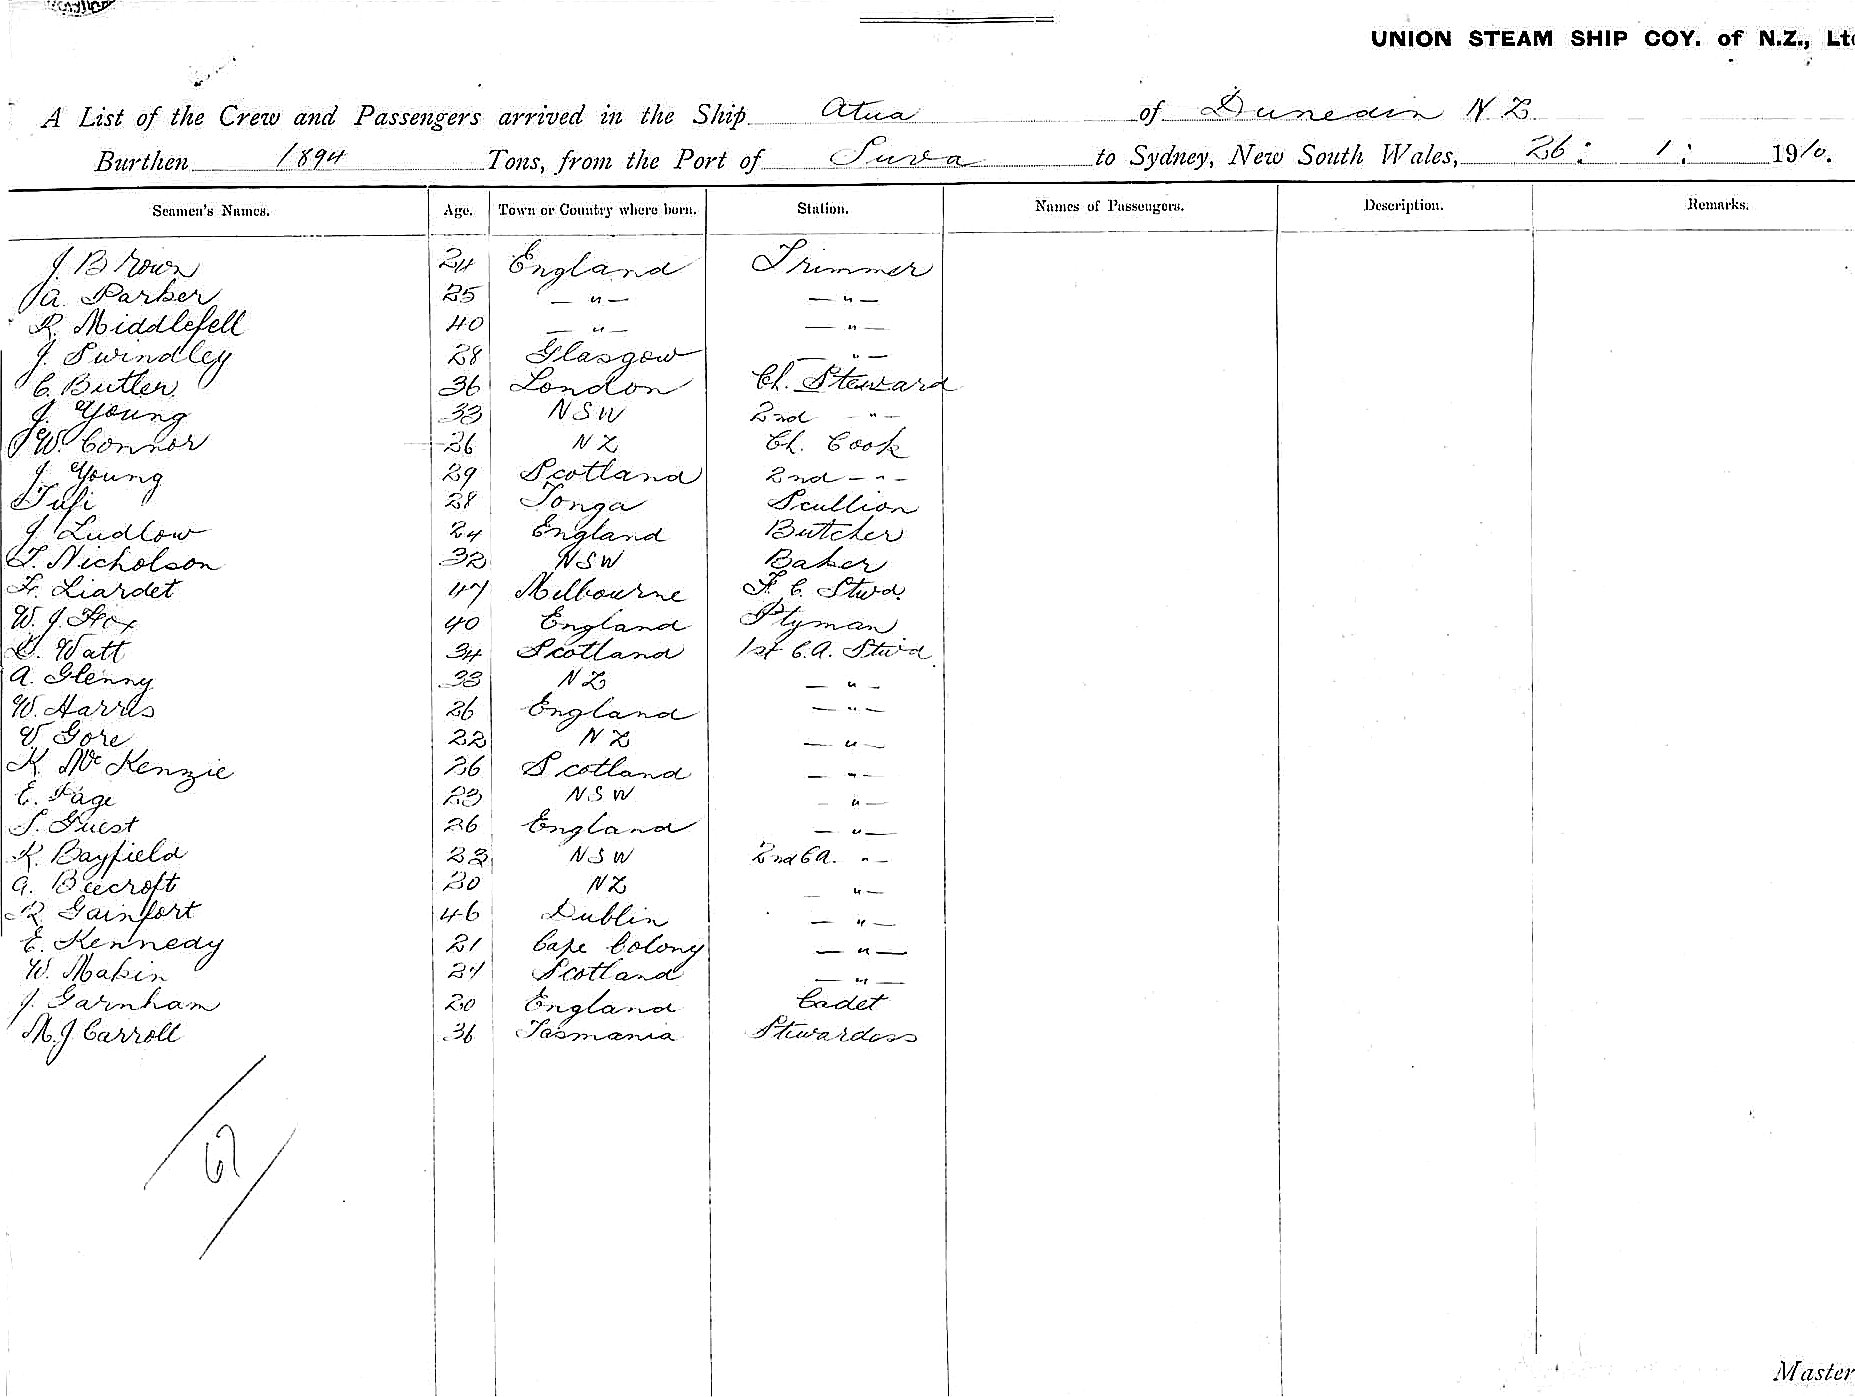 UNION STEAM SHIP COY. of N.Z., Ltd
A List of the Crew and Passengers arrived in the Ship Atua of Dunedin N.Z.
Burthen 1894 Tons, from the Port of Suva to Sydney, New South Wales, 26: 1: 1910.
Seamen's Names. Age. Town or Country where born. Station. Names of Passengers. Description. Remarks.
J. Brown 24 England Trimmer
A. Parker 25 — " — — " —
R. Middlefell 40 — " — — " —
J. Swindley 28 Glasgow — " —
C. Butler 36 London Ch. Steward
J. Young 33 NSW 2nd — " —
W. Connor 26 NZ Ch. Cook
J. Young 29 Scotland 2nd — " —
Tufi 28 Tonga Scullion
J. Ludlow 24 England Butcher
T. Nicholson 32 NSW Baker
Fr. Liardet 47 Melbourne F. C. Stwd.
W. J. Fox 40 England Ptyman
D. Watt 34 Scotland 1st C.A. Stwd
A. Glenny 33 NZ — " —
W. Harris 26 England — " —
V. Gore 22 NZ — " —
K. McKenzie 26 Scotland — " —
E. Page 23 NSW — " —
S. Guest 26 England — " —
R. Bayfield 23 NSW 2nd C.A. " —
A. Beecroft 20 NZ — " —
R. Gainfort 46 Dublin — " —
E. Kennedy 21 Cape Colony — " —
W. Makin 27 Scotland — " —
J. Garnham 20 England Cadet
M. J. Carroll 36 Tasmania Stewardess
Master